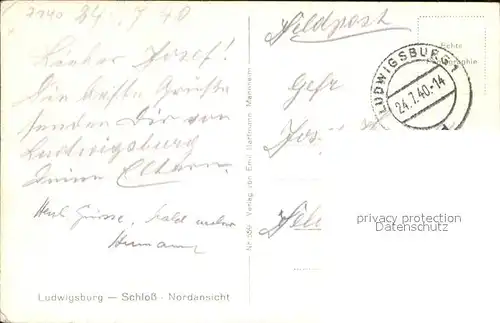 24. 7. 40
Feldpost
Echte
LUDWIGSBURG 1
24.7.40.-14
Lieber Josef!
Die besten Grüße
senden Dir von
Ludwigsburg
Deine Eltern.
Herzl. Grüsse, bald
Hermann
Gefr.
Nr
Verlag von Emil Hartmann, Mannheim
privacy protection
Datenschutz
Ludwigsburg — Schloß - Nordansicht